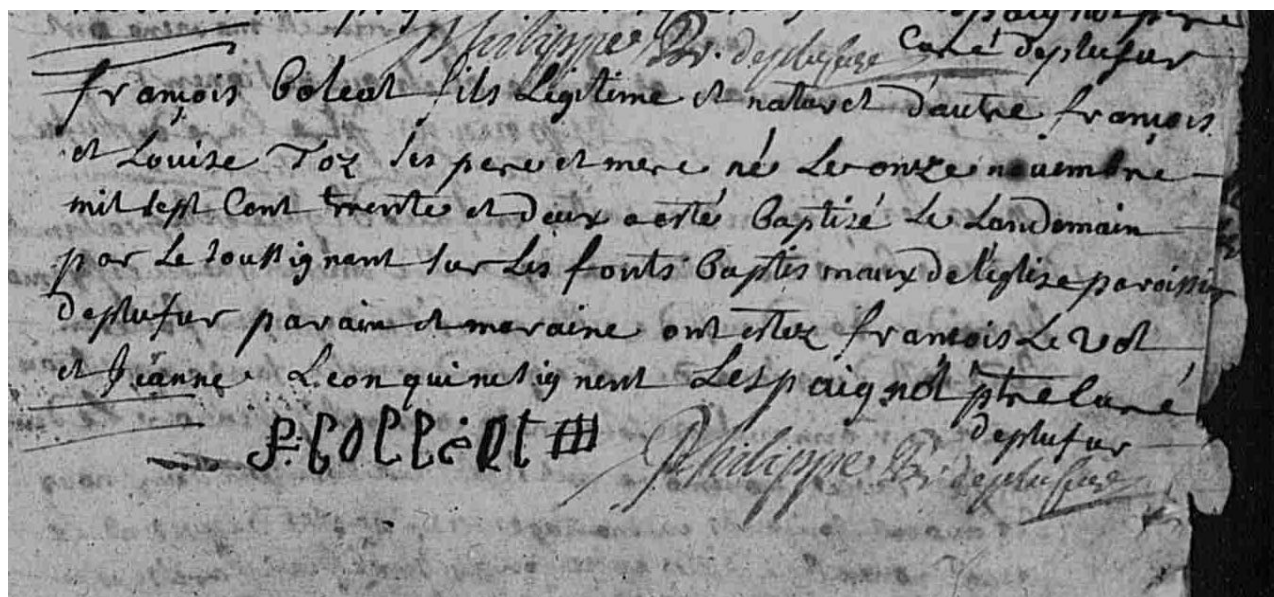 Philippe Rr. de plufure Curé de plufur
françois Coleat fils Legitime et naturel d'autre françois
et Louise Toz ses pere et mere né Le onze novembre
mil sept Cent trente et deux a esté baptizé Le Landemain
par Le soussignant sur Les fonts baptismaux de l'eglise paroissi
de plufur parain et maraine ont estez françois Le
et Jeanne Leon qui ne signent Lespaignol ptre Curé
de plufur
Philippe Rr. de plufure